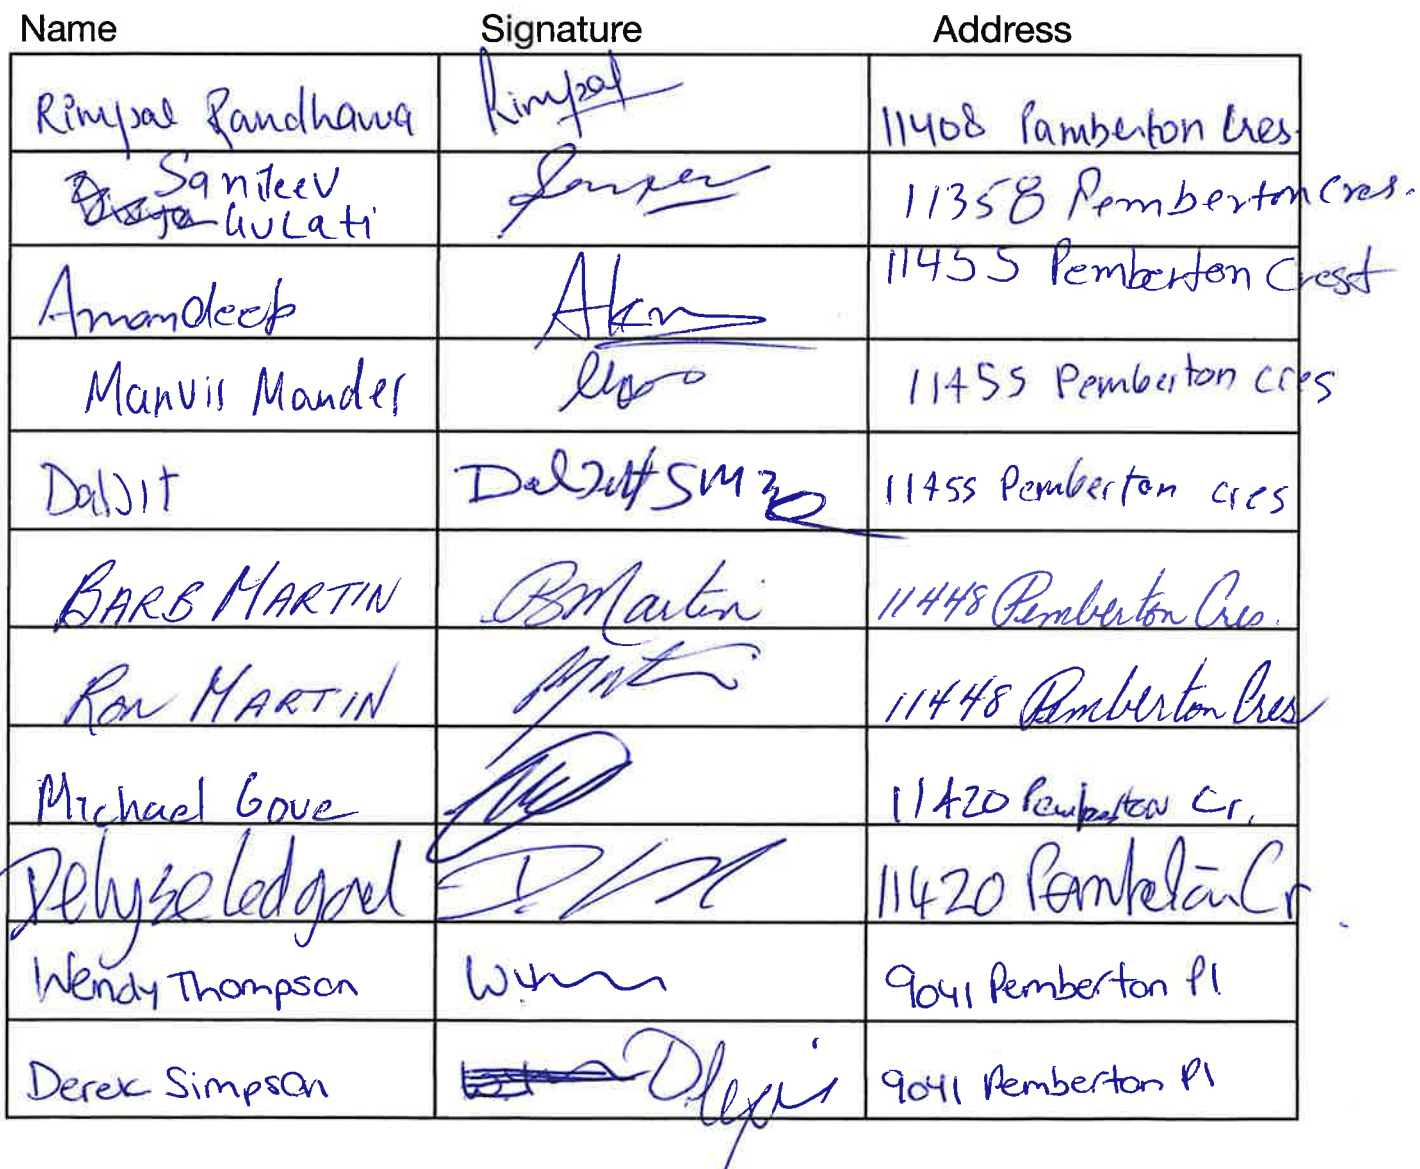 Name Signature Address
Rimpal Randhawa Rimpal 11408 Pamberton Cres.
Sanjeev 11358 Pemberton Cres.
Gulati
Amandeep 11455 Pemberton Crest
Manvir Mander 11455 Pemberton cres
Daljit 11455 Pemberton cres
BARB MARTIN BMartin 11448 Pemberton Cres.
RON MARTIN 11448 Pemberton Cres
Michael Gove 11420 Pemberton Cr.
Delyse Ledgard 11420 Pemberton Cr
Wendy Thompson 9041 Pemberton Pl
Derek Simpson 9041 Pemberton Pl